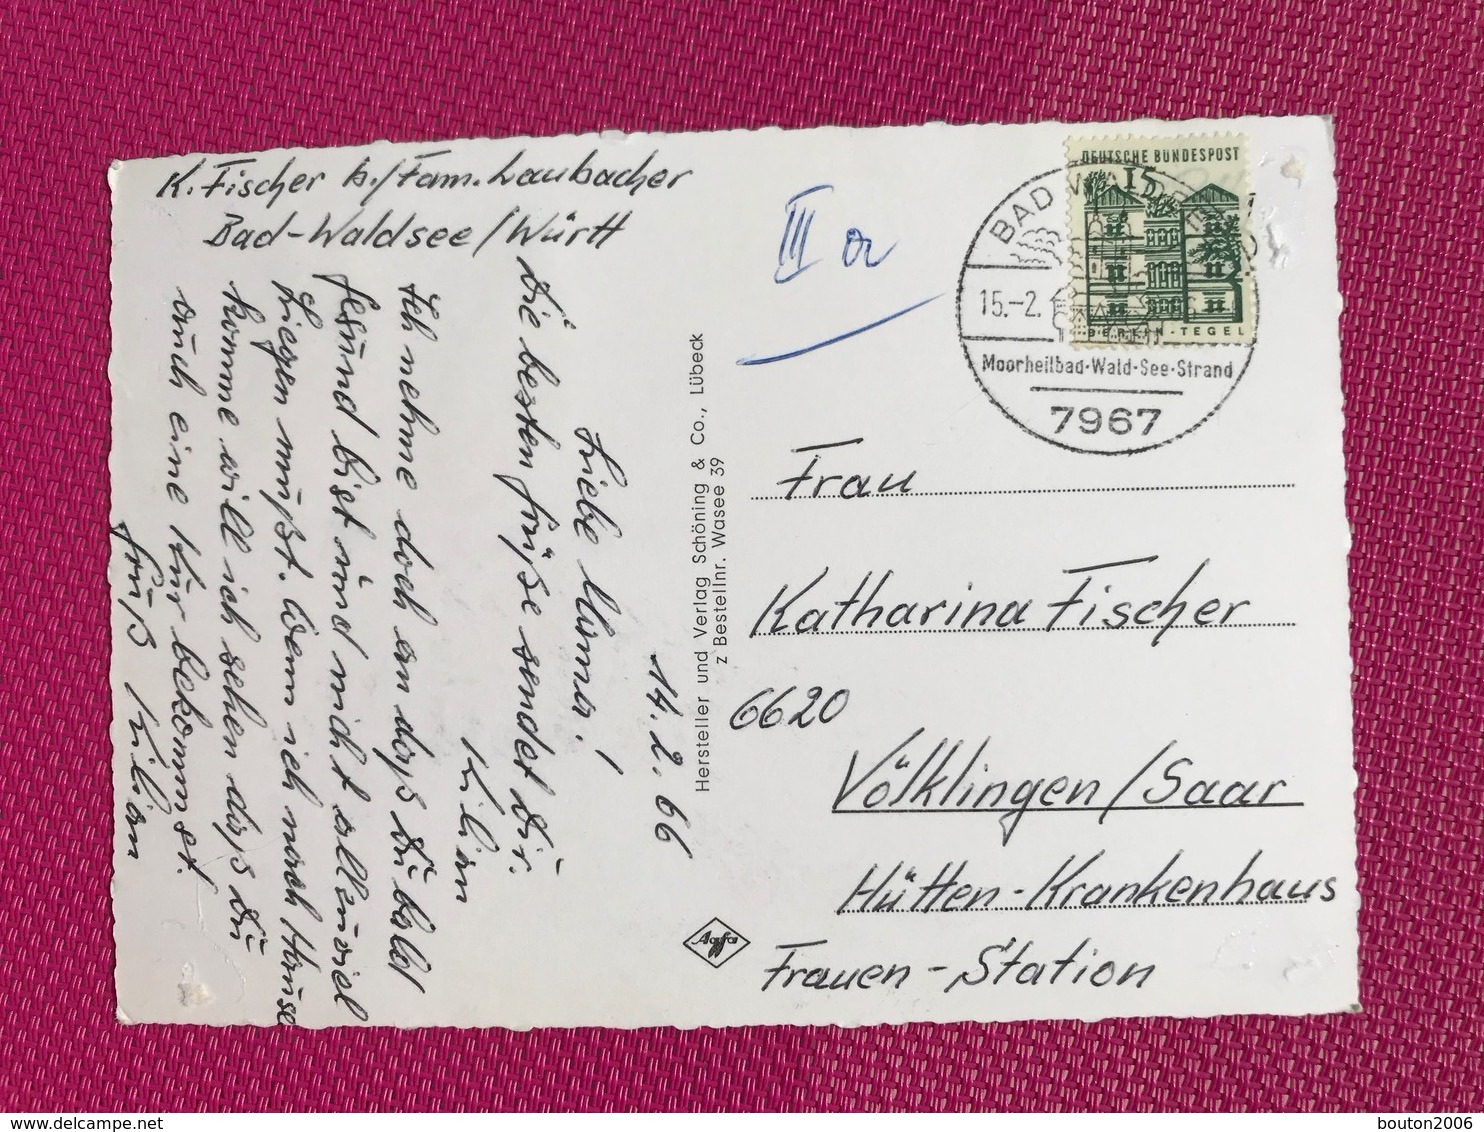 K. Fischer b./Fam. Laubacher
Bad-Waldsee/Württ
14.2.66
Liebe Mama!
Die besten Grüße sendet Dir.
Kilian
Ich nehme doch an daß Du bald
gesund bist und nicht allzuviel
Liegen mußt. Wenn ich nach Hause
komme will ich sehen daß Du
auch eine Kur bekommst.
Gruß Kilian
Hersteller und Verlag Schöning & Co., Lübeck
z Bestellnr. Wasee 39
Agfa
III a
DEUTSCHE BUNDESPOST
15
BERLIN-TEGEL
BAD WALDSEE
15.-2.
Moorheilbad-Wald-See-Strand
7967
Frau
Katharina Fischer
6620
Völklingen/Saar
Hütten-Krankenhaus
Frauen-Station
delcampe.net
bouton2006